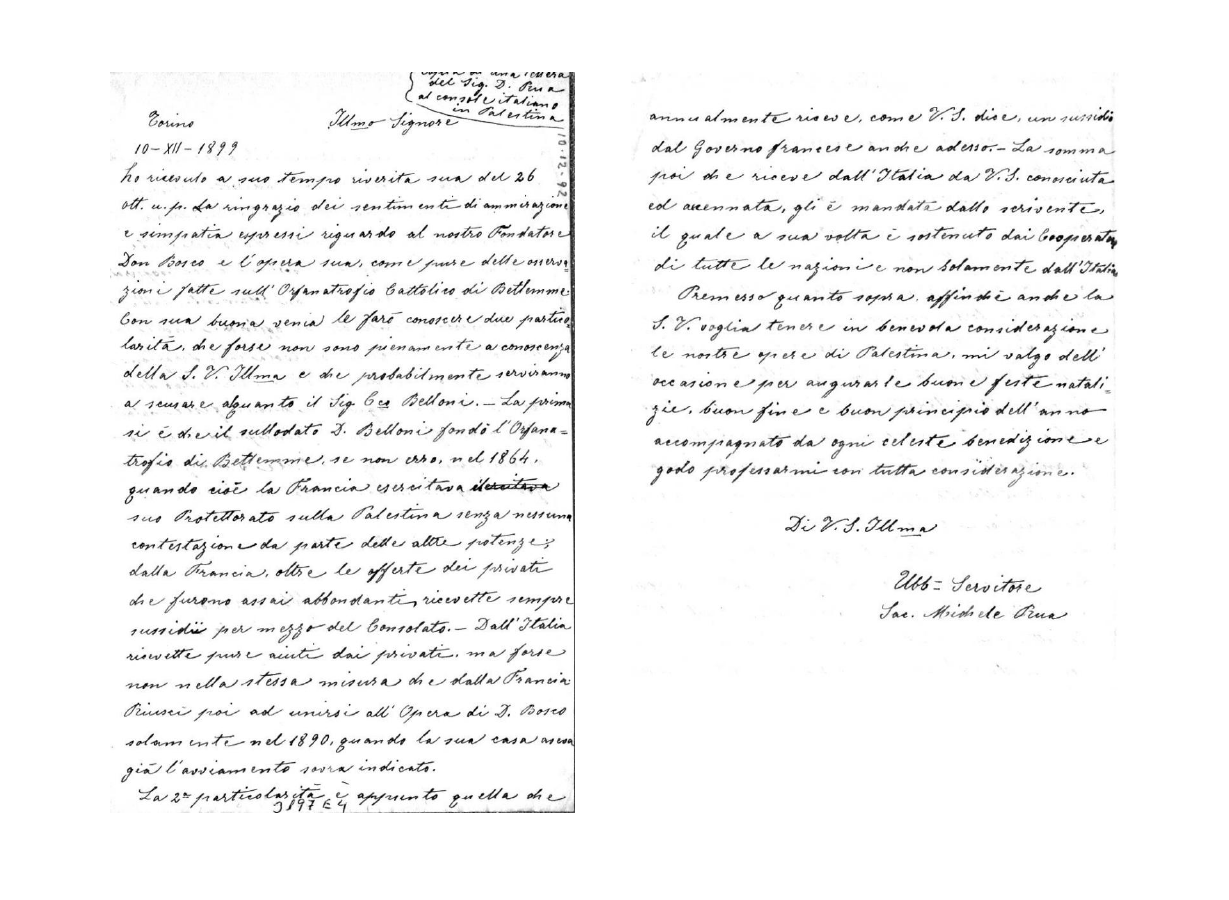 copia di una lettera
del Sig. D. Rua
al console italiano
in Palestina
Torino Illmo Signore
10-XII-1899
10-12-92
ho ricevuto a suo tempo riverita sua del 26
ott. u. p. La ringrazio dei sentimenti di ammirazione
e simpatia espressi riguardo al nostro Fondatore
Don Bosco e l'opera sua, come pure delle osserva=
zioni fatte sull'Orfanatrofio Cattolico di Betlemme
Con sua buona venia le farò conoscere due partico
larità, che forse non sono pienamente a conoscenza
della S. V. Illma e che probabilmente serviranno
a scusare alquanto il Sig Cco Belloni. — La prima
si è che il sullodato D. Belloni fondò l'Orfana=
trofio di Bettemme, se non erro, nel 1864,
quando cioè la Francia esercitava
suo Protettorato sulla Palestina senza nessuna
contestazione da parte delle altre potenze;
dalla Francia, oltre le offerte dei privati
che furono assai abbondanti, ricevette sempre
sussidii per mezzo del Consolato. — Dall'Italia
ricevette pure aiuti dai privati, ma forse
non nella stessa misura che dalla Francia
Riuscì poi ad unirsi all'Opera di D. Bosco
solamente nel 1890, quando la sua casa aveva
già l'avviamento sovra indicato.
La 2ª particolarità è appunto quella che
3897 E 4
annualmente riceve, come V. S. dice, un sussidio
dal Governo francese anche adesso. — La somma
poi che riceve dall'Italia da V. S. conosciuta
ed accennata, gli è mandata dallo scrivente,
il quale a sua volta è sostenuto dai Cooperatori
di tutte le nazioni e non solamente dall'Italia
Premesso quanto sopra, affinchè anche la
S. V. voglia tenere in benevola considerazione
le nostre opere di Palestina, mi valgo dell'
occasione per augurarle buone feste natali=
zie, buon fine e buon principio dell'anno
accompagnato da ogni celeste benedizione e
godo professarmi con tutta considerazione.
Di V. S. Illma
Ubb= Servitore
Sac. Michele Rua